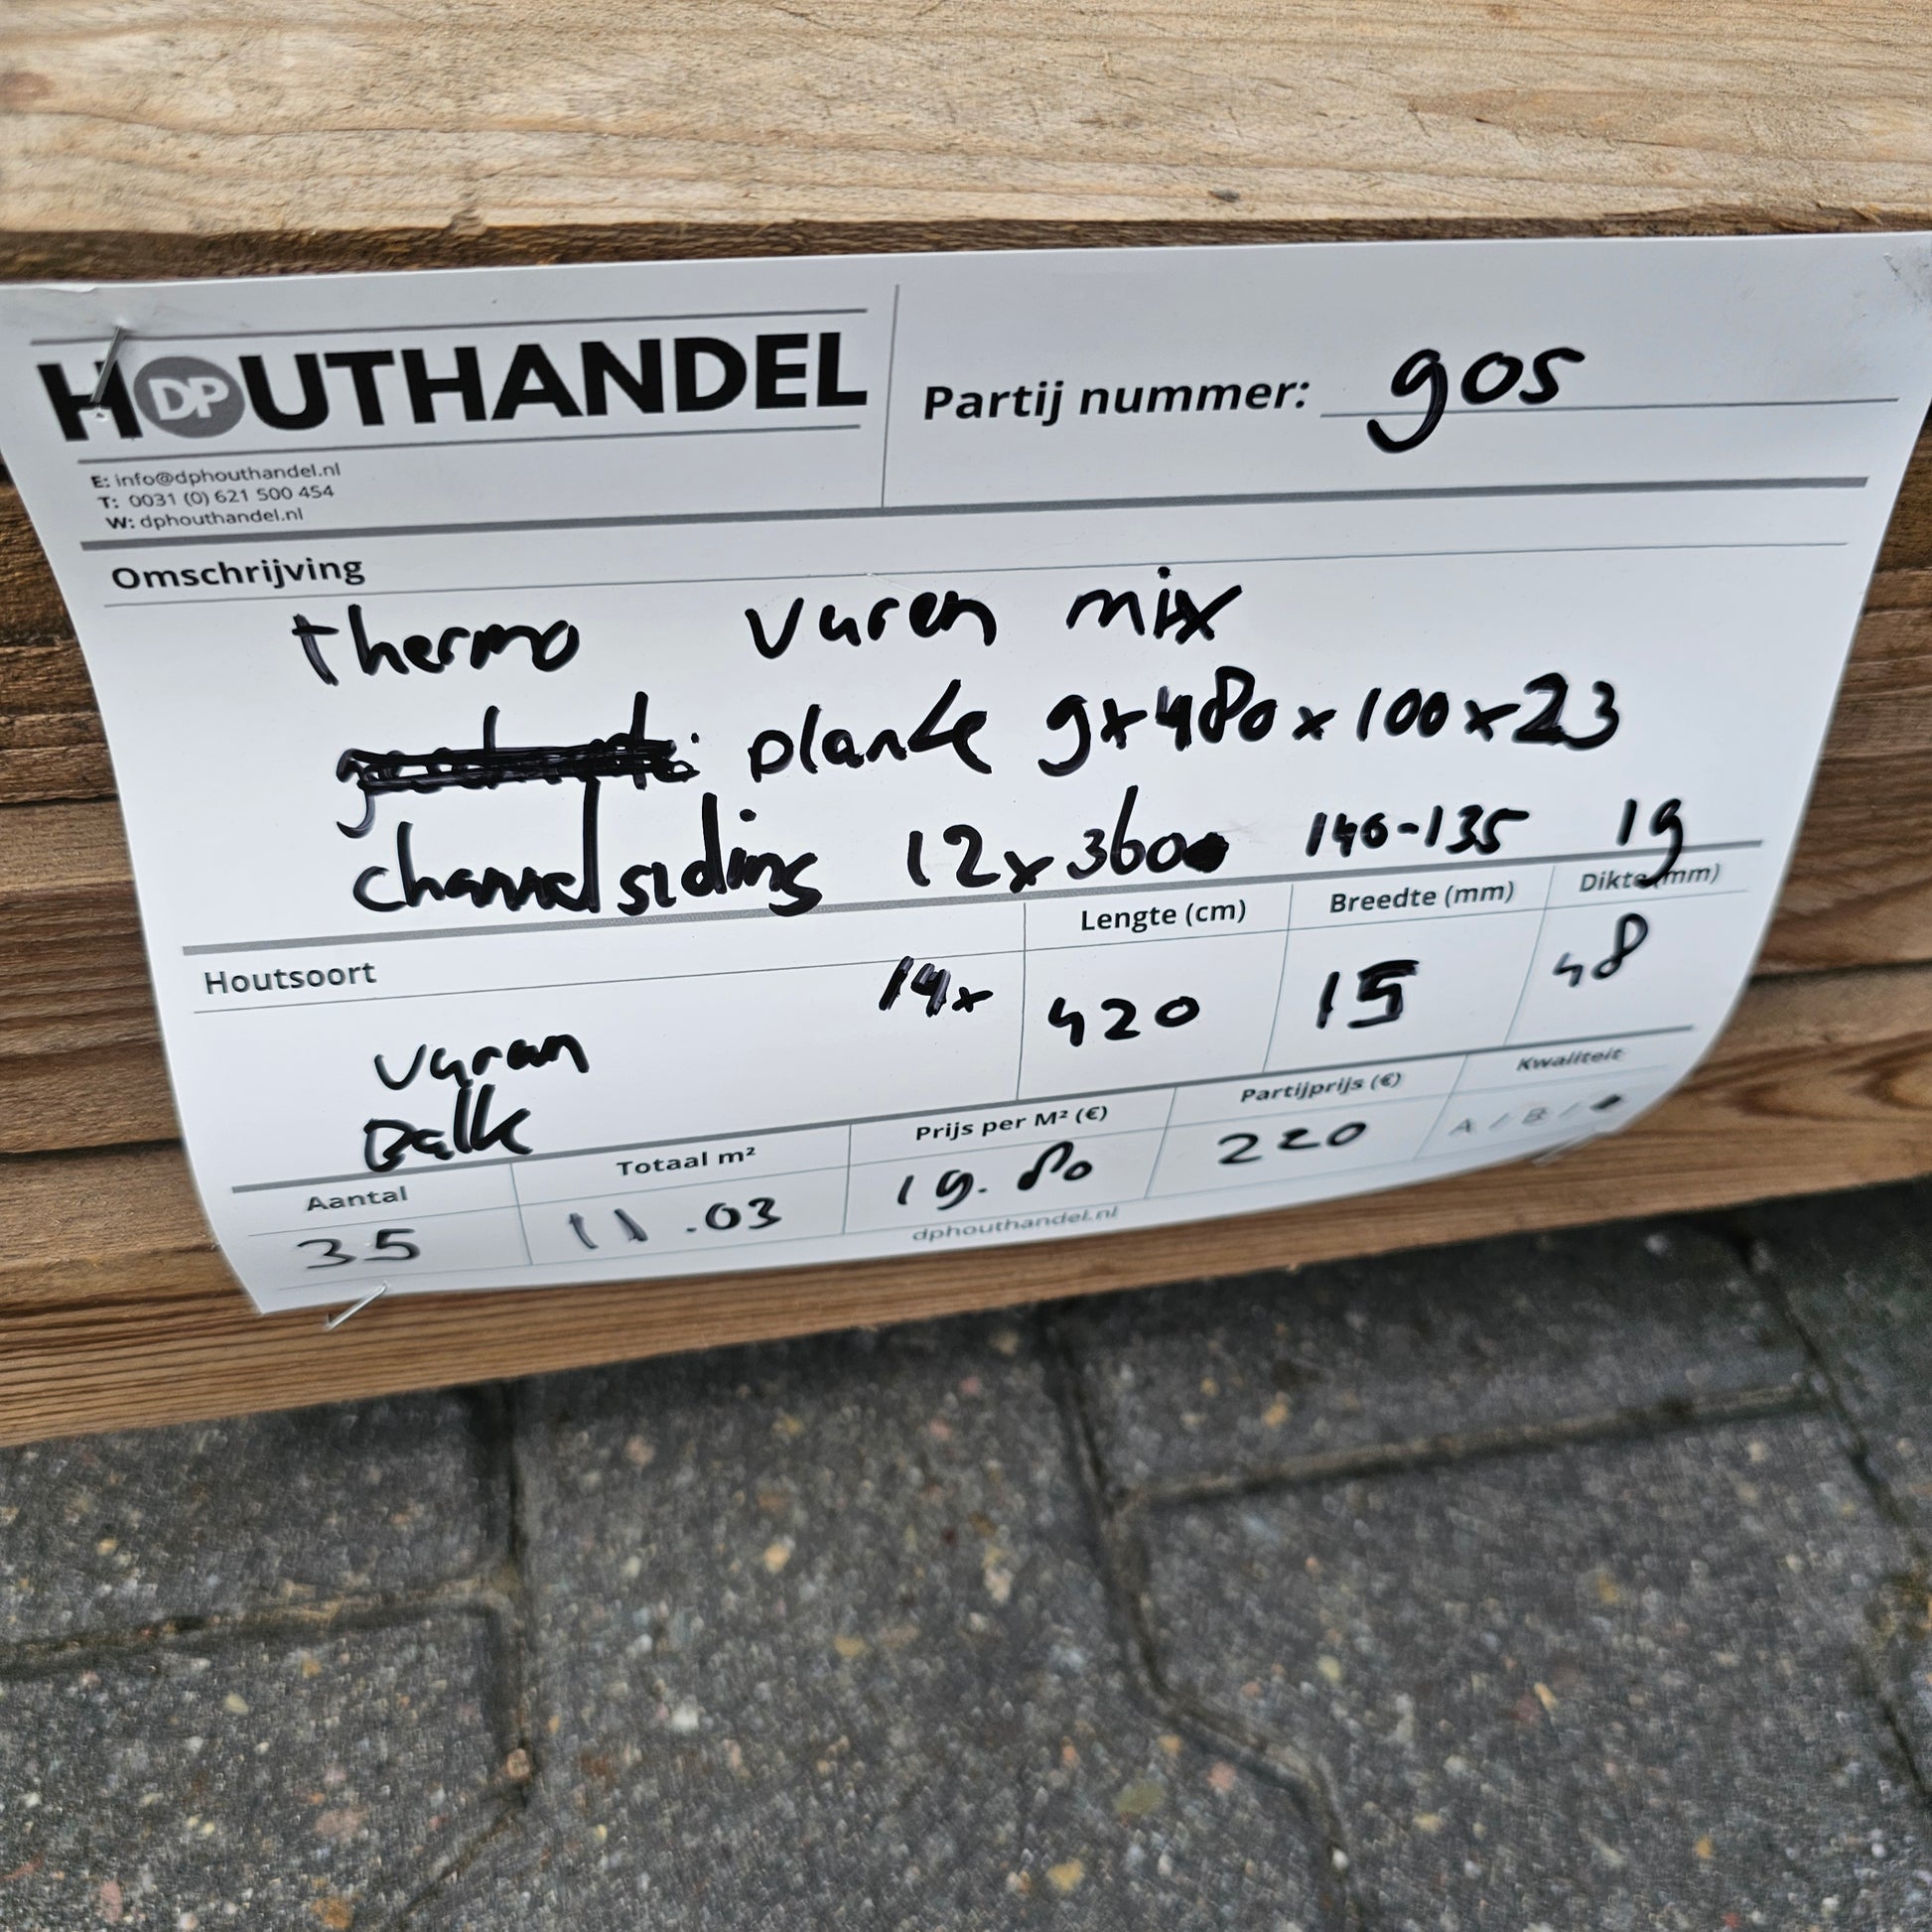 HOUTHANDEL
DP
E: info@dphouthandel.nl
T: 0031 (0) 621 500 454
W: dphouthandel.nl
Partij nummer: 905
Omschrijving
thermo vuren mix
planke 9x480x100x23
channelsiding 12x360 140-135 19
Houtsoort
Lengte (cm)
Breedte (mm)
Dikte (mm)
14x
420
15
48
vuren
Balk
Aantal
Totaal m²
Prijs per M² (€)
Partijprijs (€)
Kwaliteit
35
11.03
19.80
220
A / B /
dphouthandel.nl